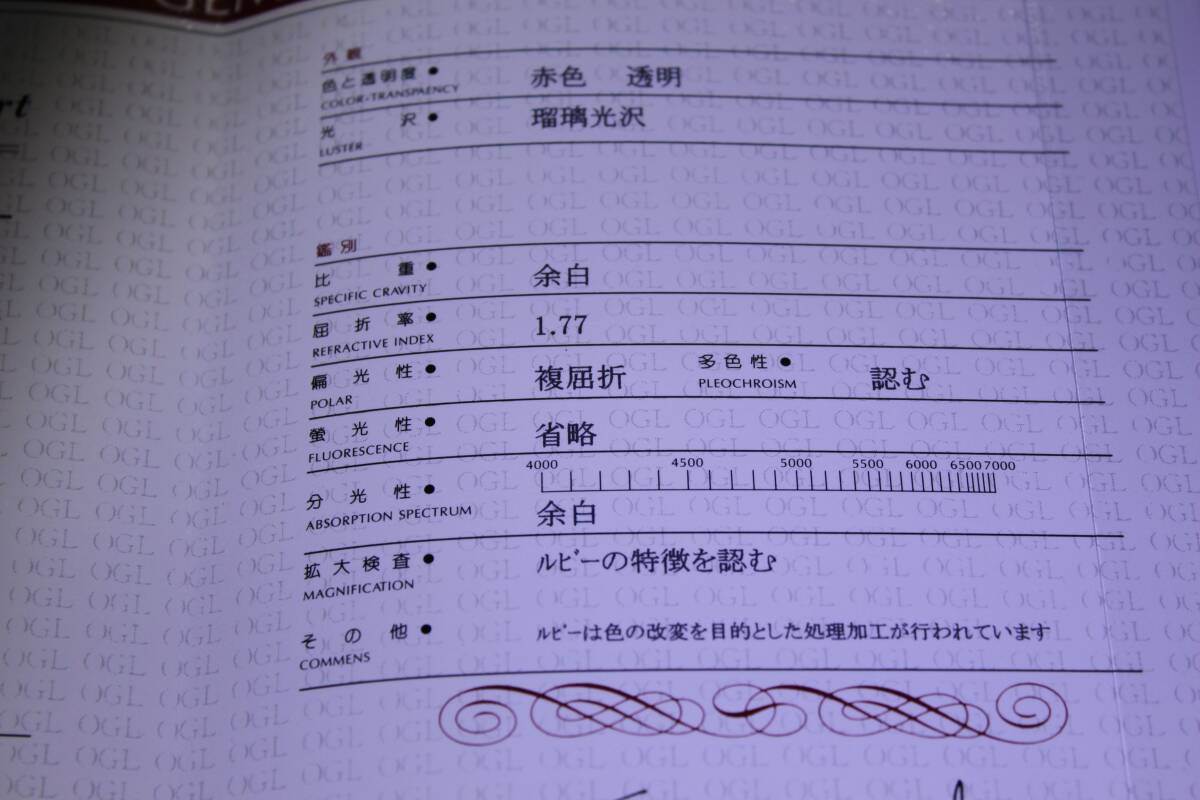 外観
色と透明度● 赤色 透明
COLOR・TRANSPAENCY
光 沢● 瑠璃光沢
LUSTER
鑑別
比 重● 余白
SPECIFIC CRAVITY
屈 折 率● 1.77
REFRACTIVE INDEX
偏 光 性● 複屈折 多色性● 認む
POLAR PLEOCHROISM
螢 光 性● 省略
FLUORESCENCE
4000 4500 5000 5500 6000 6500 7000
分 光 性● 余白
ABSORPTION SPECTRUM
拡大検査● ルビーの特徴を認む
MAGNIFICATION
そ の 他● ルビーは色の改変を目的とした処理加工が行われています
COMMENS